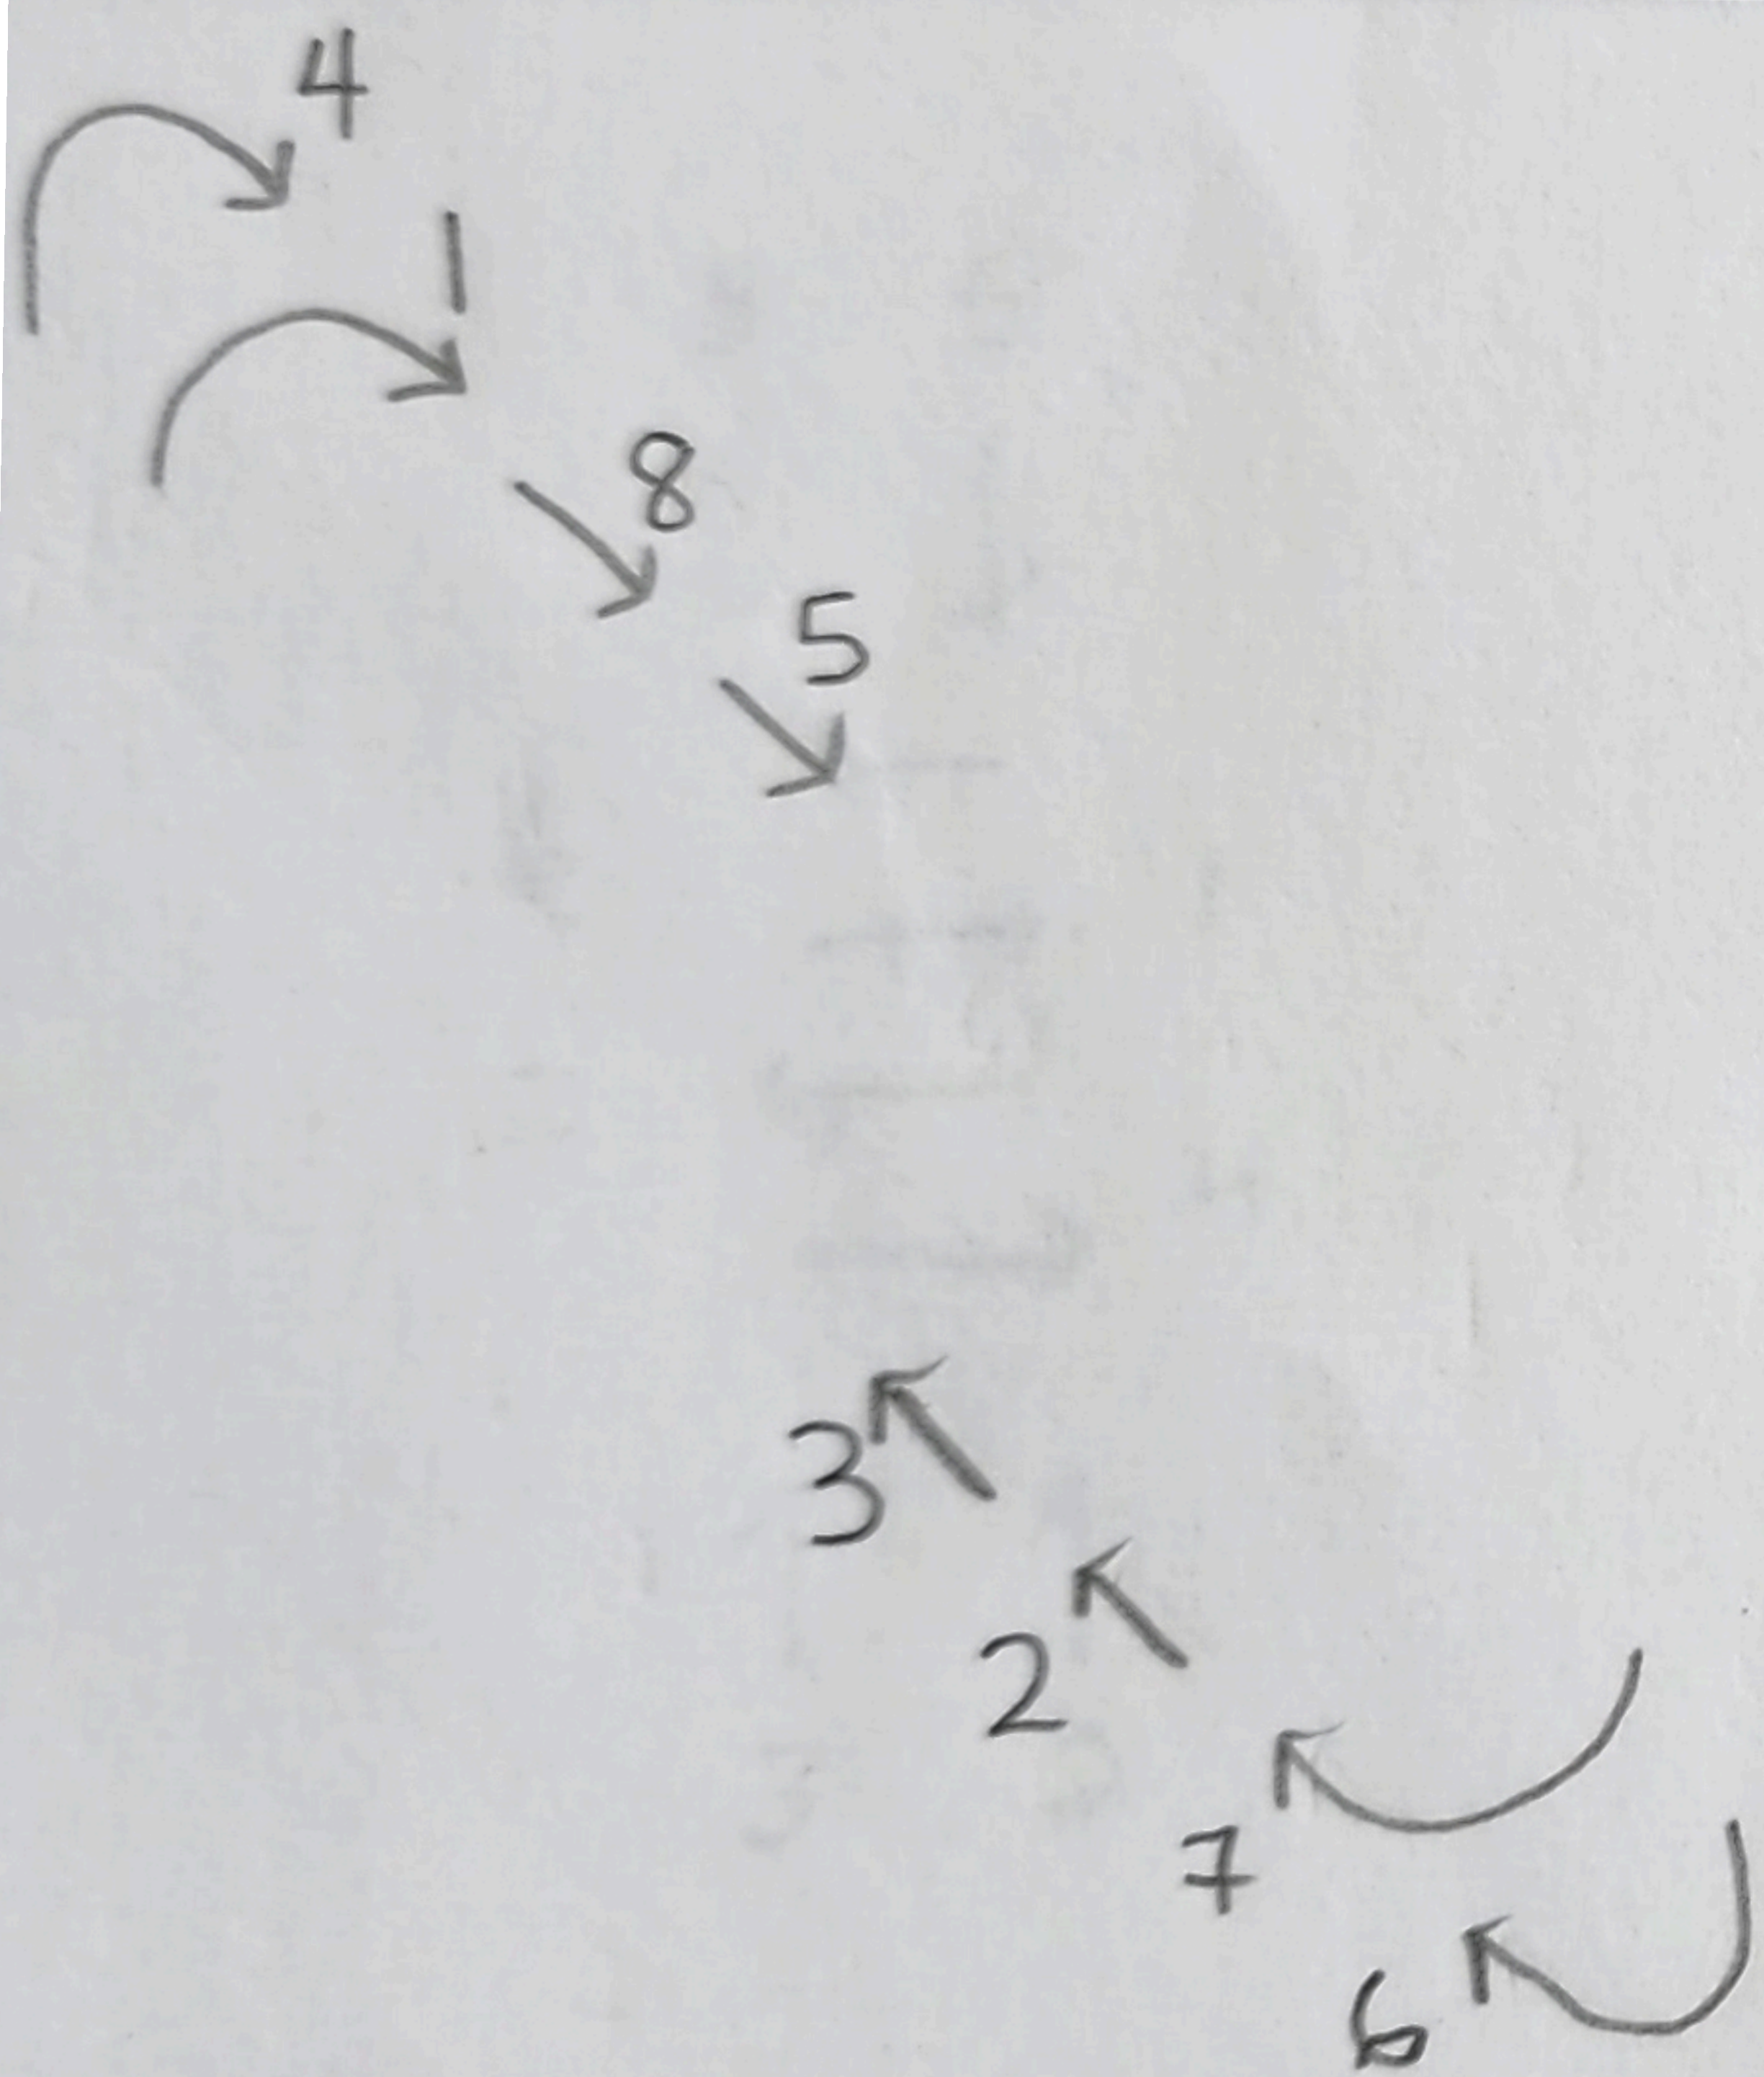 4
1
8
5
3
2
7
6